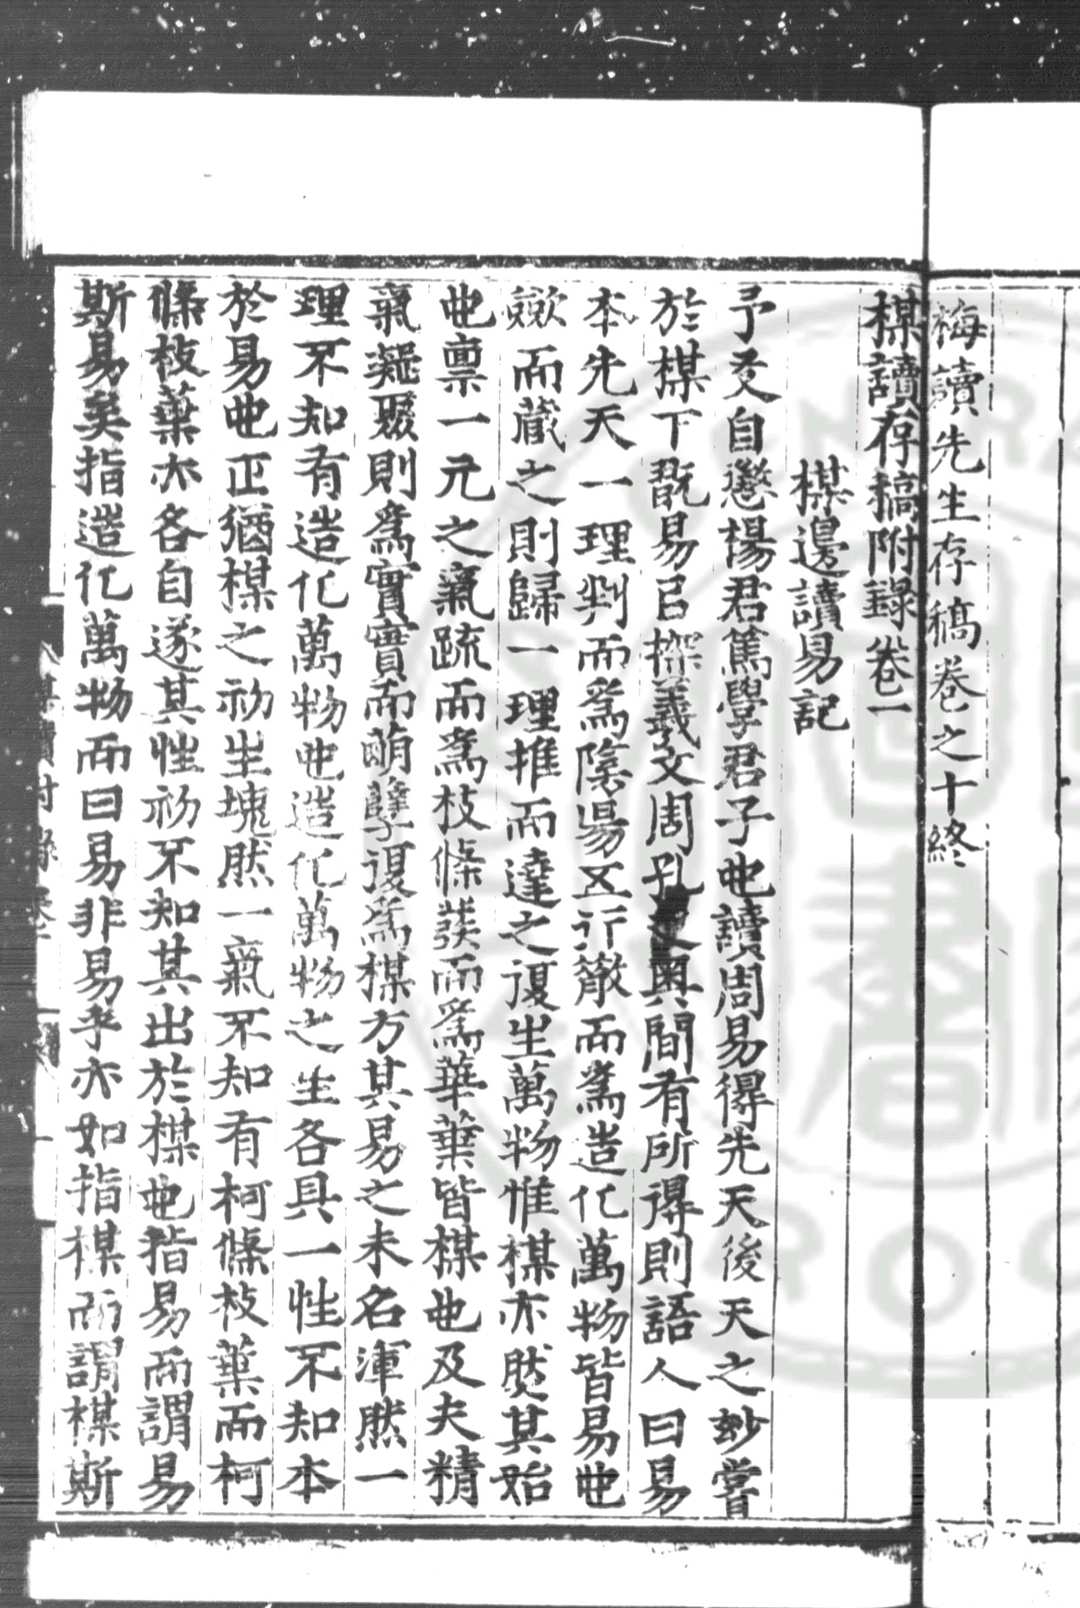 梅讀先生存稿卷之十終
楳讀存稿附録卷一
楳邊讀易記
予友自懲楊君篤學君子也讀周易得先天後天之妙嘗
於楳下翫易已探羲文周孔之奥間有所得則語人曰易
本先天一理判而爲陰陽五行散而爲造化萬物皆易也
歛而藏之則歸一理推而達之復生萬物惟楳亦然其始
也禀一元之氣疏而爲枝條發而爲華葉皆楳也及夫精
氣凝聚則爲實實而萌孽復爲楳方其易之未名渾然一
理不知有造化萬物也造化萬物之生各具一性不知本
於易也正猶楳之初生塊然一氣不知有柯條枝葉而柯
條枝葉亦各自遂其性初不知其出於楳也指易而謂易
斯易矣指造化萬物而曰易非易乎亦如指楳而謂楳斯